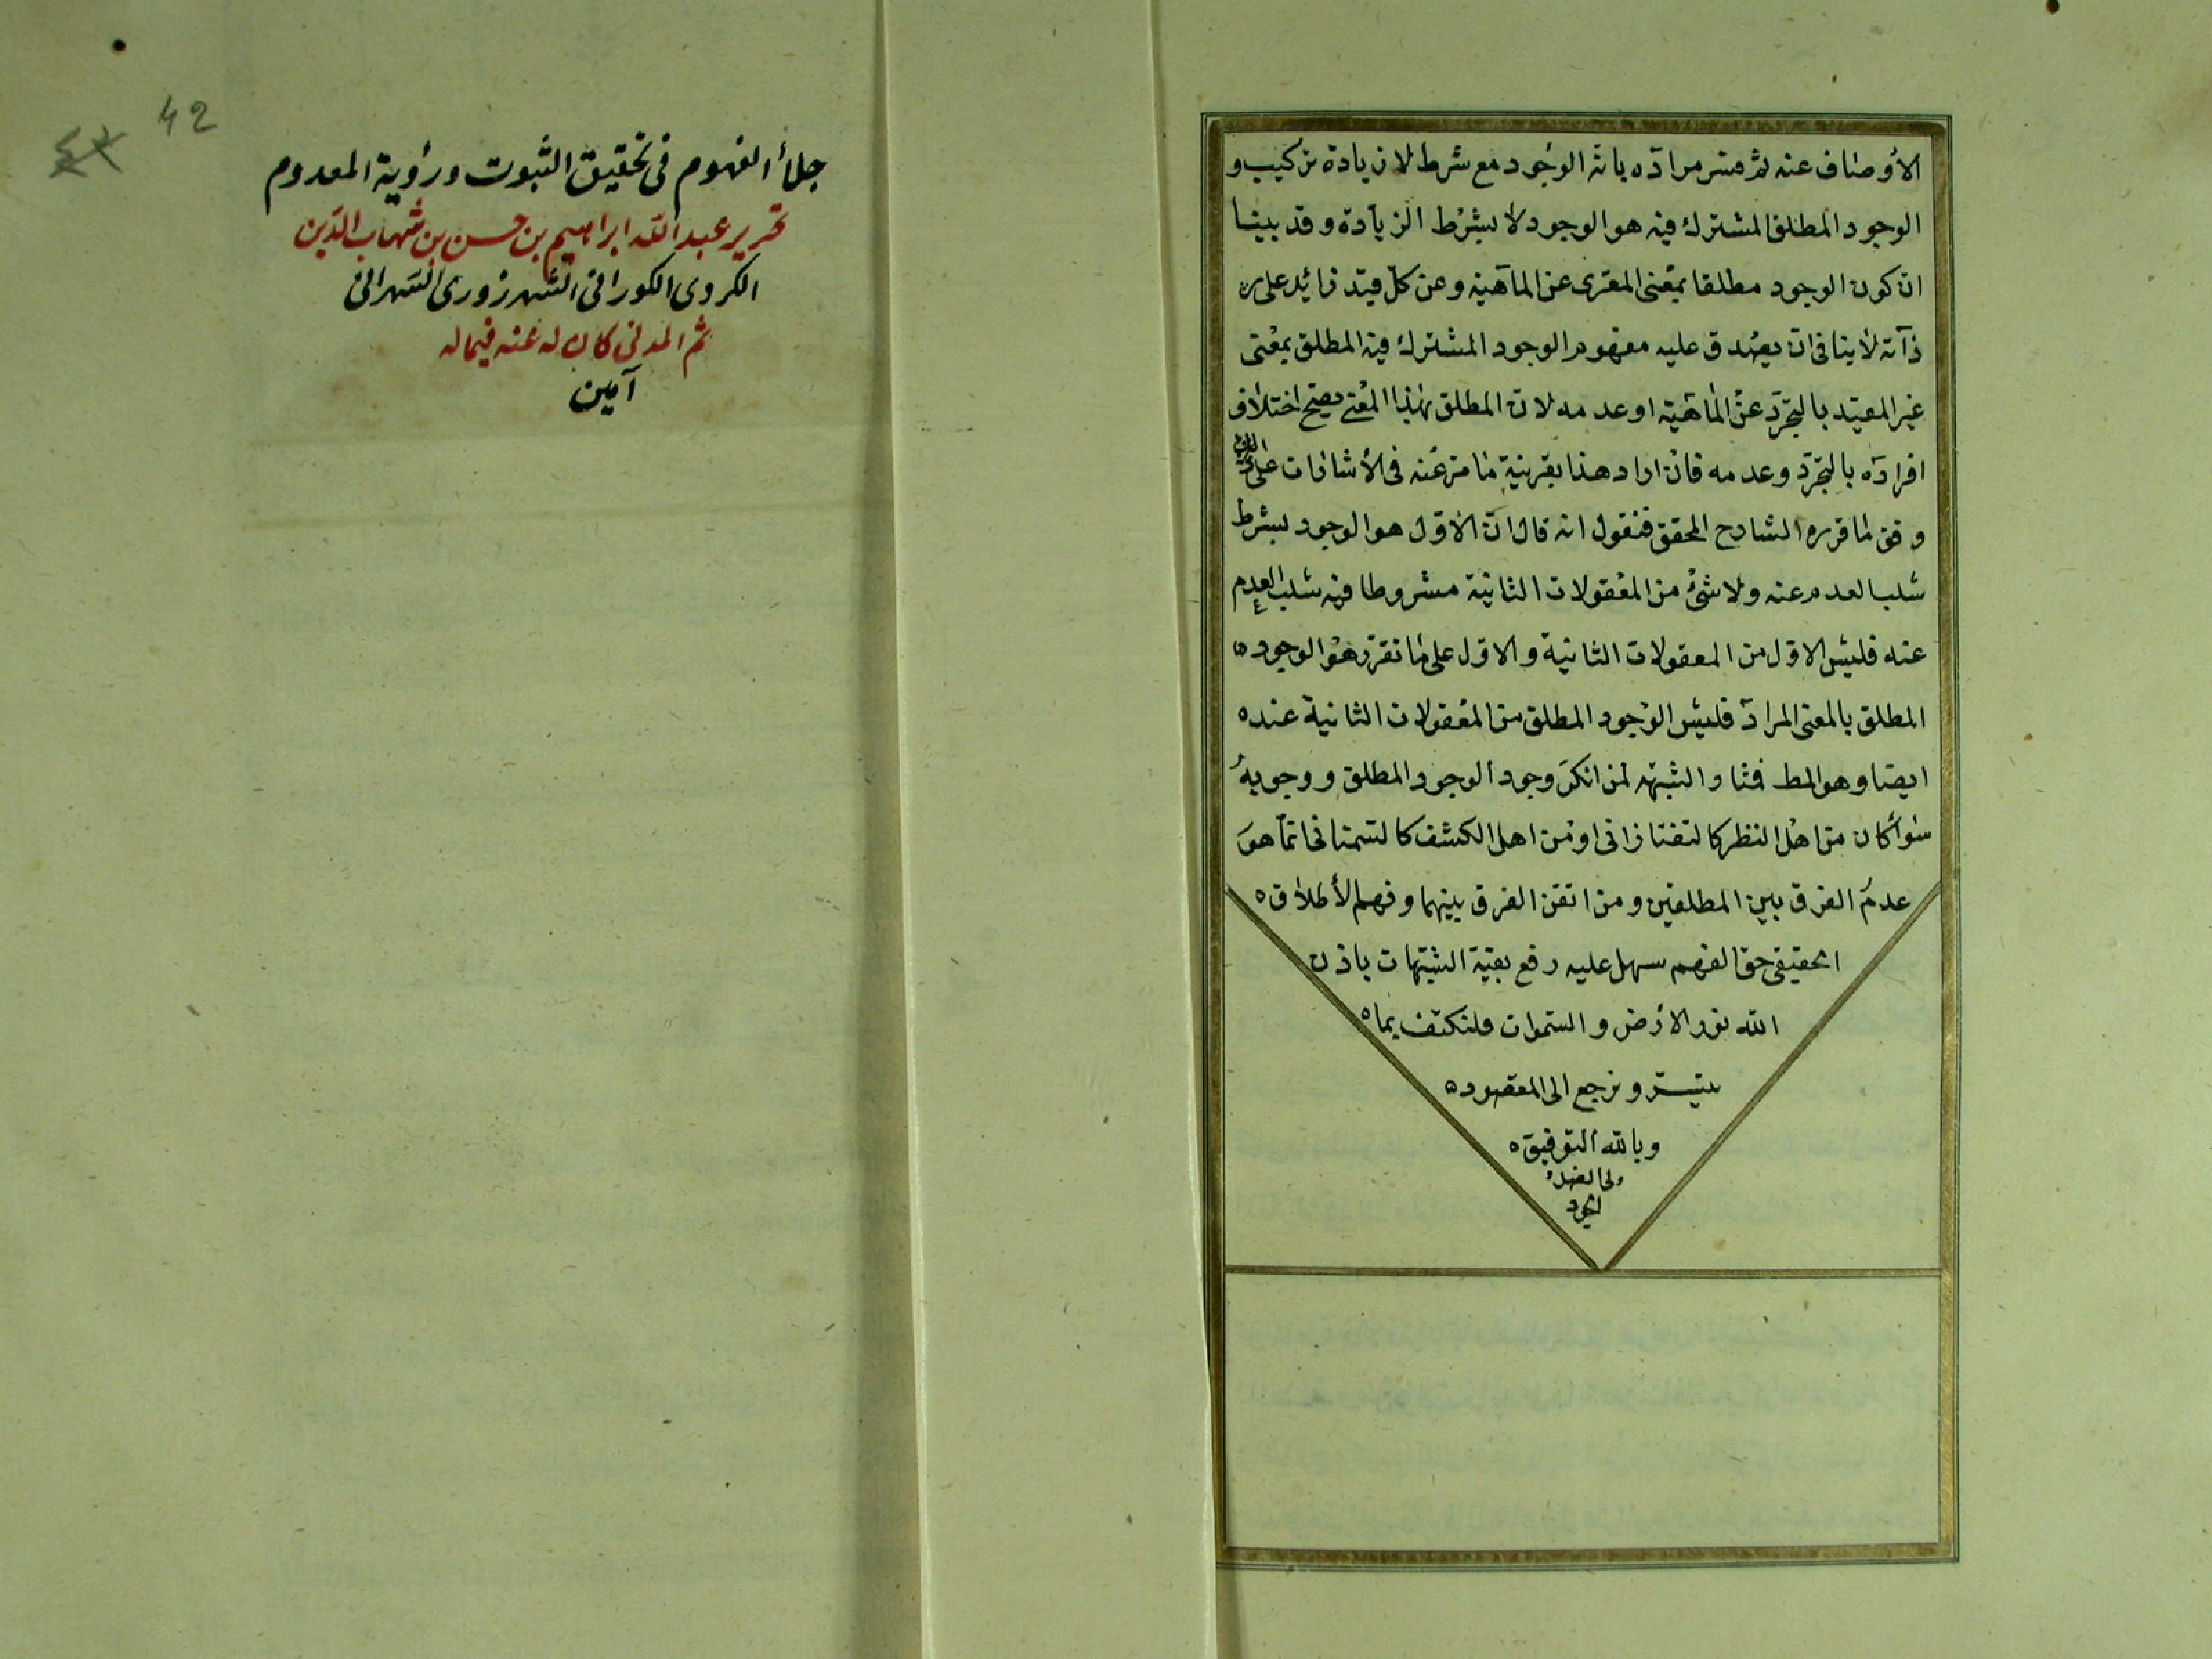 الأوصاف عنه ثم فسر مراده بانه الوجود مع شرط لا زيادة تركيب و
الوجود المطلق المشترك فيه هو الوجود لا بشرط الزيادة وقد بينا
ان كون الوجود مطلقا بمعنى المعرى عن الماهية وعن كل قيد زائد على
ذاته لا ينافى ان يصدق عليه مفهوم الوجود المشترك فيه المطلق بمعنى
غير المقيد بالتجرد عن الماهية او عدمه لان المطلق بهذا المعنى يصح اختلاف
افراده بالتجرد وعدمه فان اراد هذا بقرينة ما مر عنه فى الأشارات على
وفق ما قرره الشارح المحقق فنقول انه قال ان الاول هو الوجود بشرط
سلب العدم عنه ولا شئ من المعقولات الثانية مشروطا فيه سلب العدم
عنه فليس الاول من المعقولات الثانية والاول على ما تقرر هو الوجود
المطلق بالمعنى المراد فليس الوجود المطلق من المعقولات الثانية عنده
ايضا وهو المط فمثار الشبهة لمن انكر وجود الوجود المطلق ووجوبه
سوأ كان من اهل النظر كالتفتازانى او من اهل الكشف كالسمنانى انما هو
عدم الفرق بين المطلقين ومن اتقن الفرق بينهما وفهم الأطلاق
الحقيقى حق الفهم سهل عليه رفع بقية الشبهات باذن
الله نور الأرض والسموات فلنكتف بما
تيسر ونرجع الى المقصود
وبالله التوفيق
ولى الفضل
الجود
42
جلأ الفهوم فى تحقيق الثبوت ورؤية المعدوم
تحرير عبد الله ابراهيم بن حسن بن شهاب الدين
الكردى الكورانى الشهرزورى الشهرانى
ثم المدنى كان له عنه فيماله
آمين